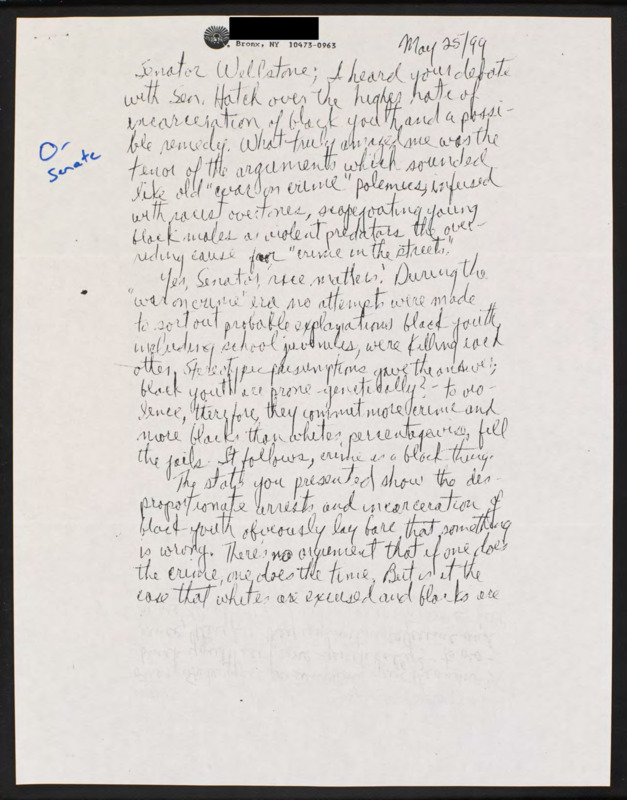 Bronx, NY 10473-0963
May 25/99
Senator Wellstone; I heard your debate
with Sen. Hatch over the higher rate of
incarceration of black youth and a possi-
ble remedy. What truly amazed me was the
tenor of the arguments which sounded
like old "war on crime" polemics, infused
with racist overtones, scapegoating young
black males as violent predators the over-
riding cause for "crime in the streets."
Yes, Senator, race matters! During the
"war on crime" era no attempts were made
to sort out probable explanations black youth,
including school juveniles, were killing each
other. Stereotypic presumptions gave the answer;
black youth are prone - genetically? - to vio-
lence, therefore, they commit more crime and
more blacks than whites, percentagewise, fill
the jails. It follows, crime is a black thing.
The stats you presented show the dis-
proportionate arrests and incarceration of
black youth obviously lay bare that something
is wrong. There's no argument that if one does
the crime, one does the time. But is it the
case that whites are excused and blacks are
O-
Senate